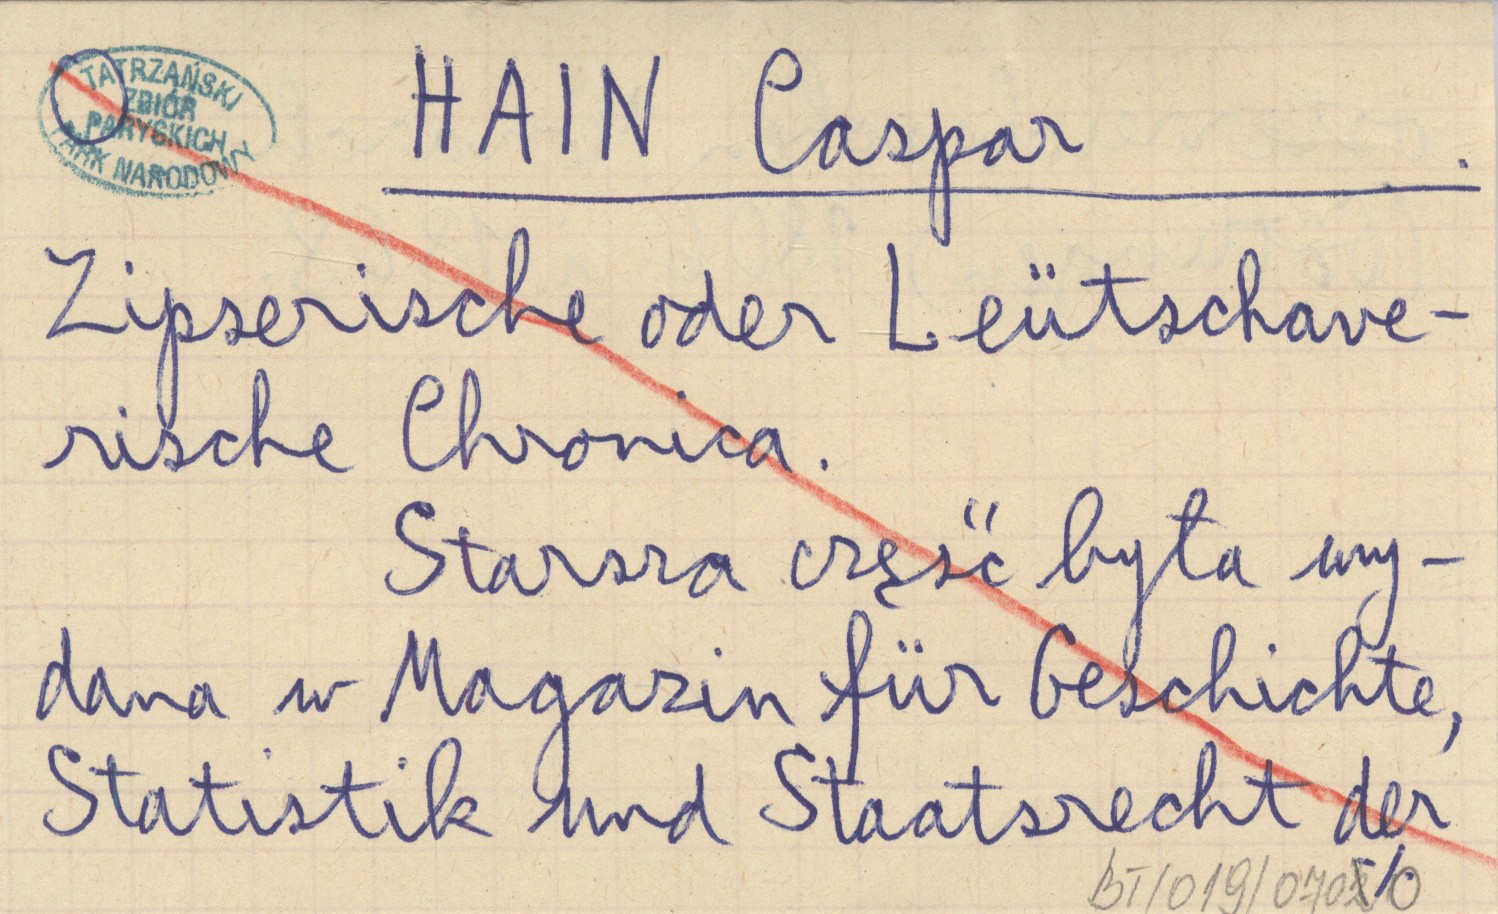 TATRZAŃSKI
ZBIÓR
PARYSKICH
PARK NARODOWY
HAIN Caspar
Zipserische oder Leütschave-
rische Chronica.
Starsza część była wy-
dana w Magazin für Geschichte,
Statistik und Staatsrecht der